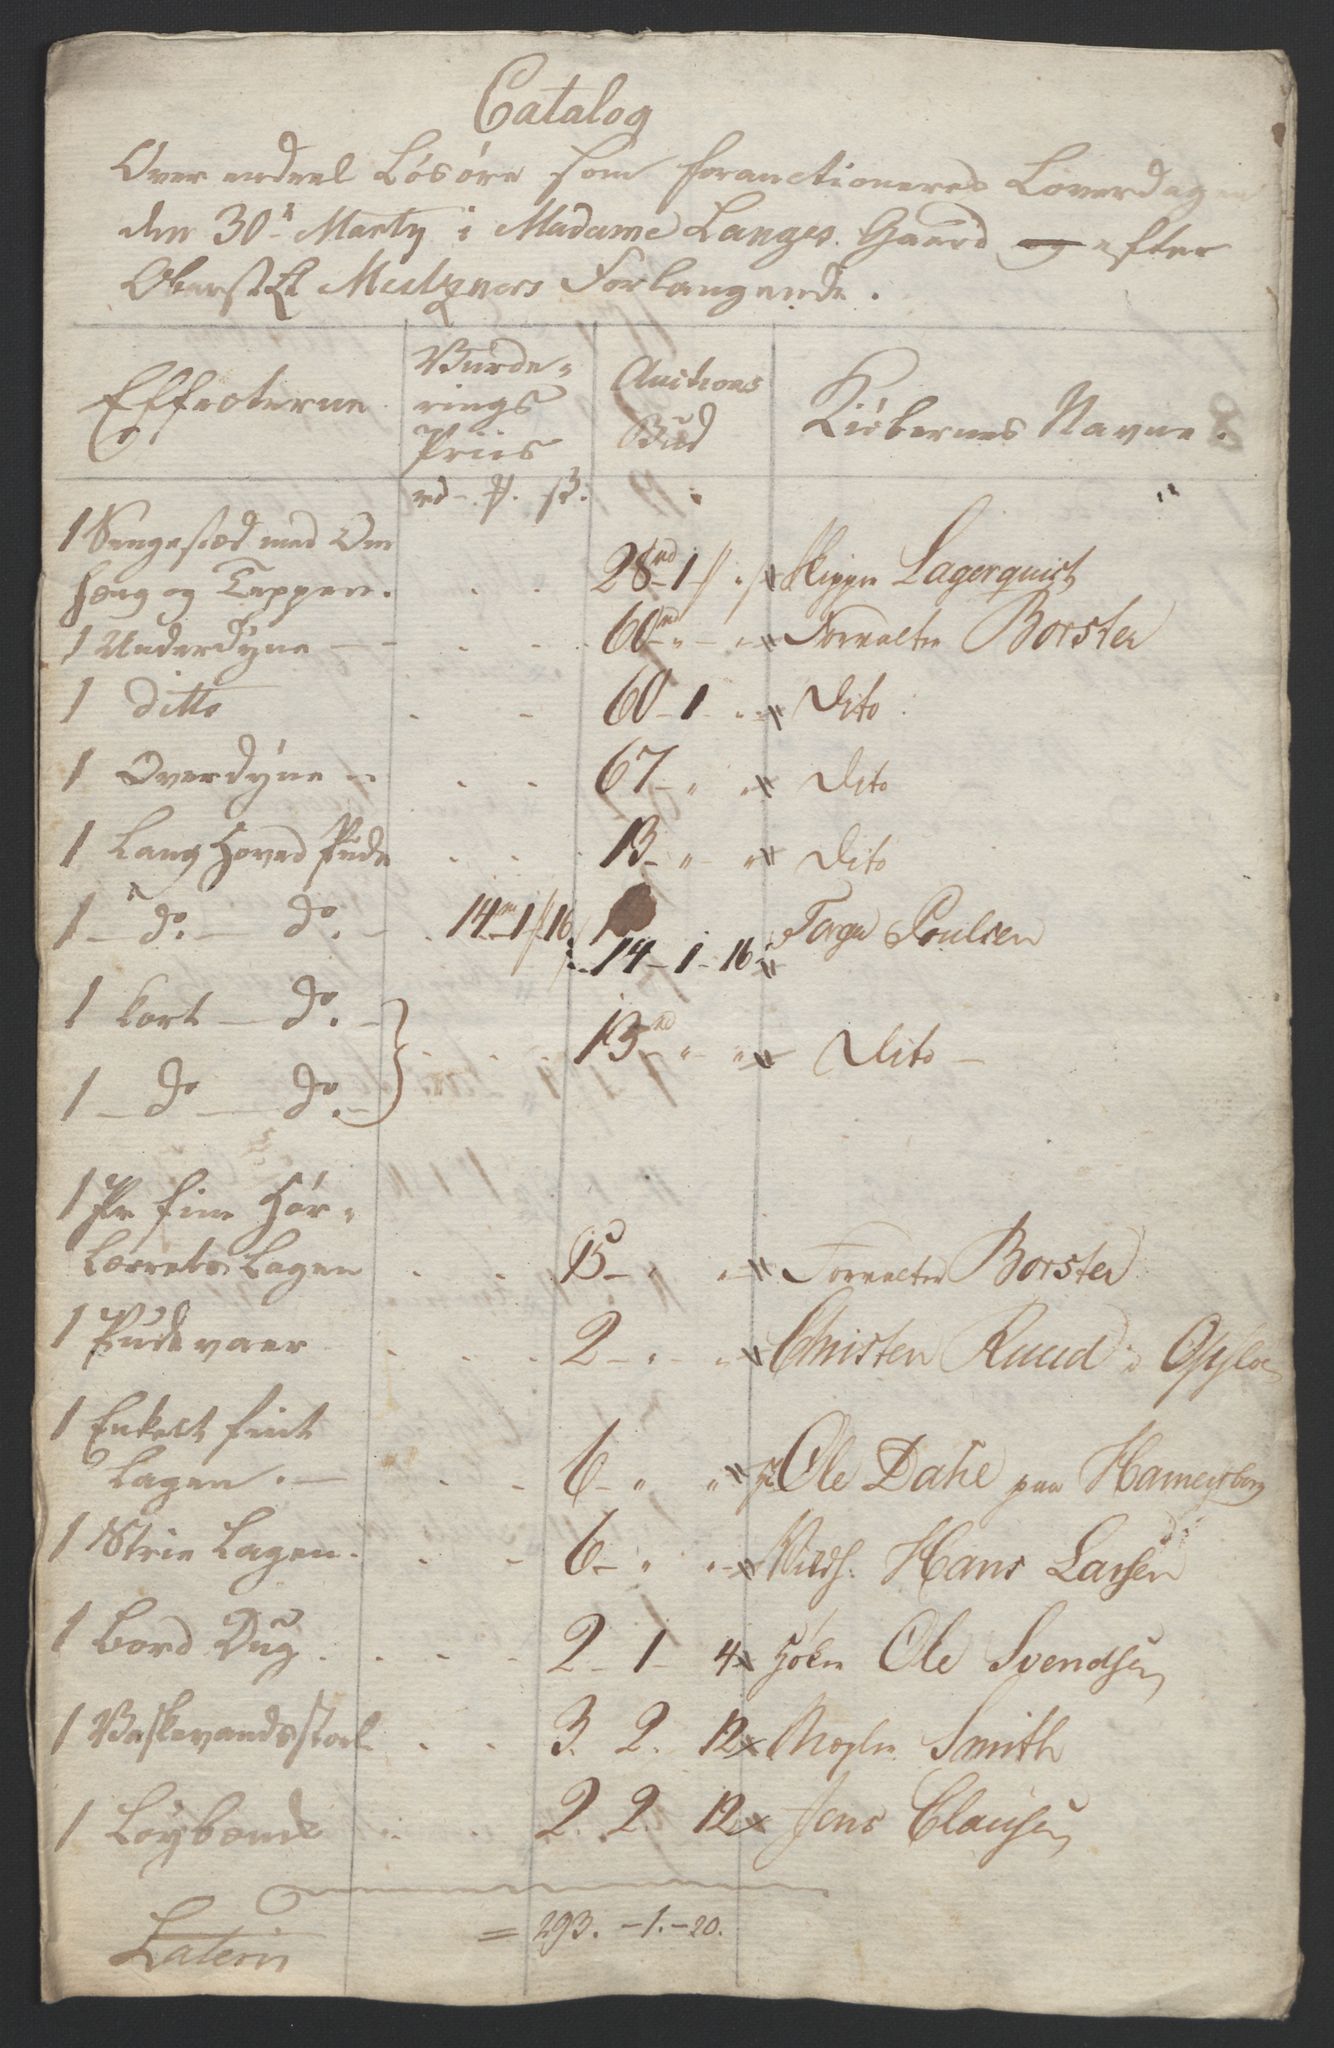 Catalog
Over endeel Løsøre som forauctioneres Løverdagen
den 30te Martÿ i Madame Langes Gaard og efter
Oberst Lt Meltzners Forlangende.
Effecterne Vurde- Auctions Kiøbernes Navne.
rings Bud
Priis
rd - # - ß.
1 Sengestæd med Om
hæng og Teppen. . . 28rd 1 # " Skipper Lagerquist
1 Underdÿne - . 60rd " - " Forvalter Borster
1 ditto . - 60 - 1 - " Dito
1 Overdÿne - . . 67 - " " Dito
1 Lang Hoved Pude . . 13 - " - " Dito
1 - do. - do. - . 14 - 1 - 16 Poulsen
14 - 1 - 16
1 kort - do. -
13rd " - " Dito -
1 - do - do. -
1 Pr fine Hør-
Lærrets Lagen . . 15 - " " Forvalter Borster
1 Pude vaer . . . 2 - " - " Christen Ruud i Opslo
1 Enkelt fint
Lagen . - . . 6 - " " Ole Dahl paa Hamersborg
1 Strie Lagen . . - 6 - " " Hans Larsen
1 Bord Dug . . . 2 - 1 - 4 Ole Svendsen
1 Vaskevandsstoel . . 3. 2. 12 Mægler Smith
1 Løybænk . . 2. 2. 12 Jens Clausen
Lateris = 293. - 1. - 20.